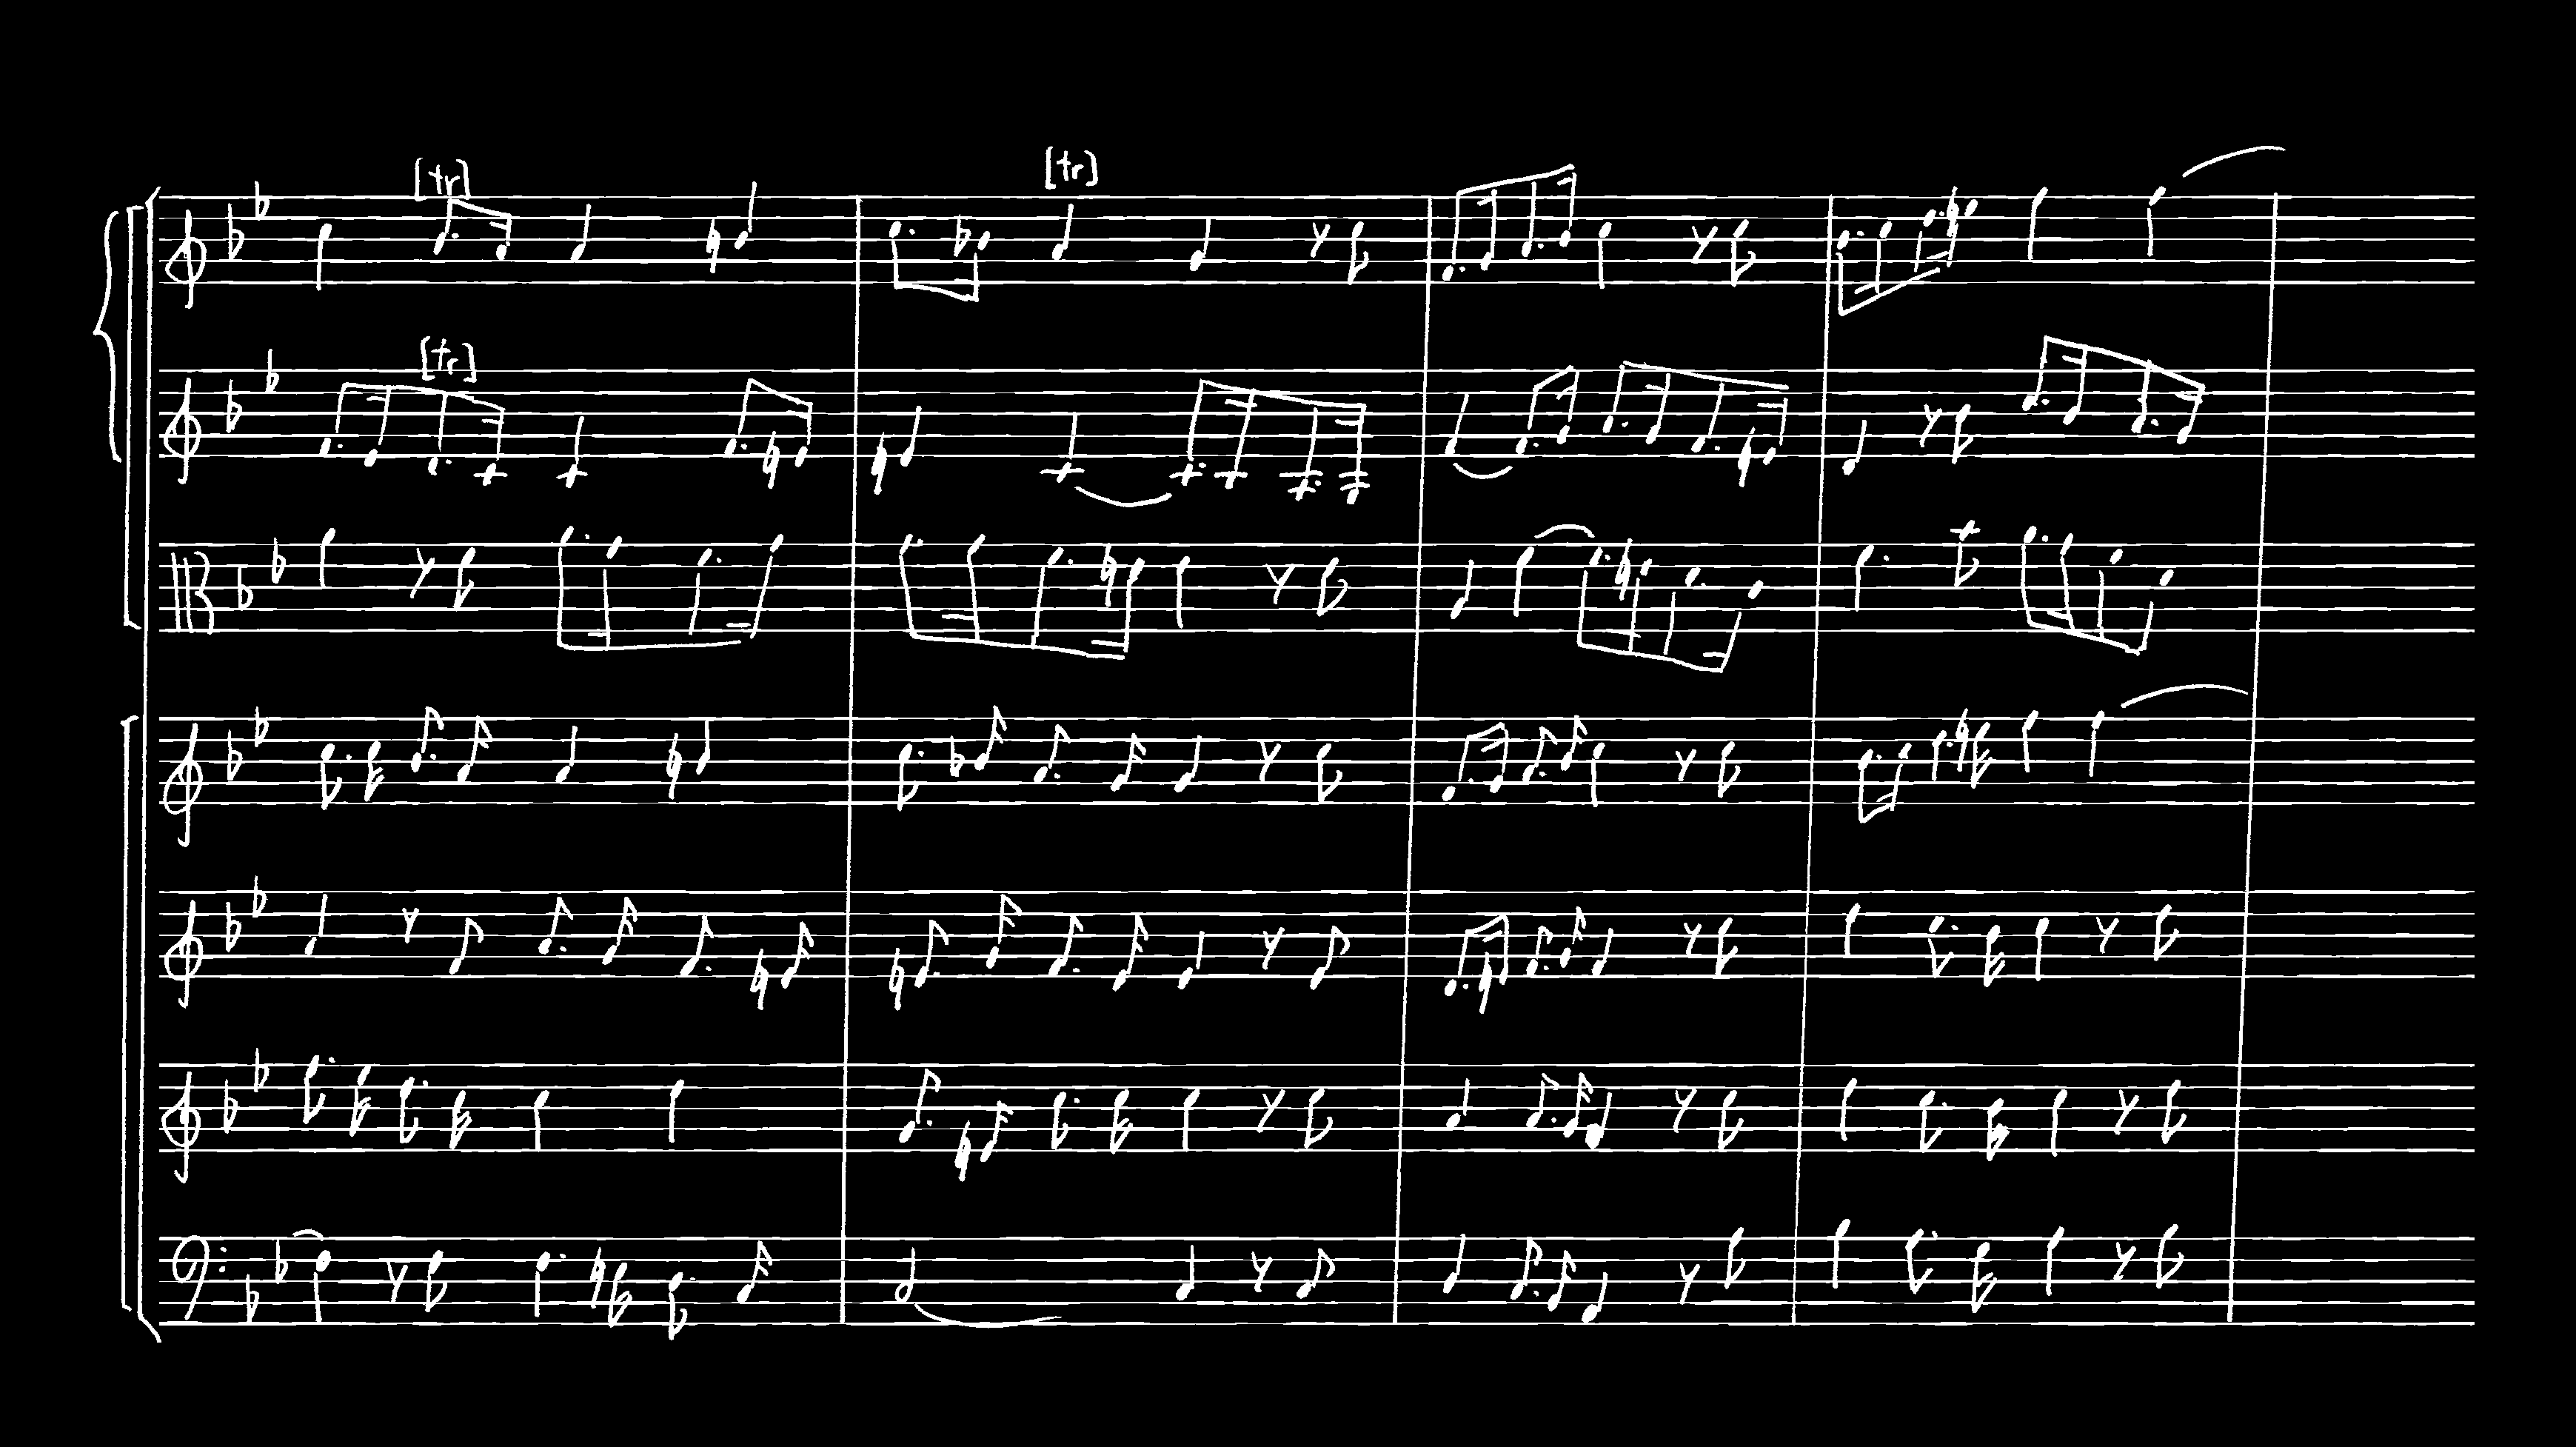 [tr] [tr]
[tr]